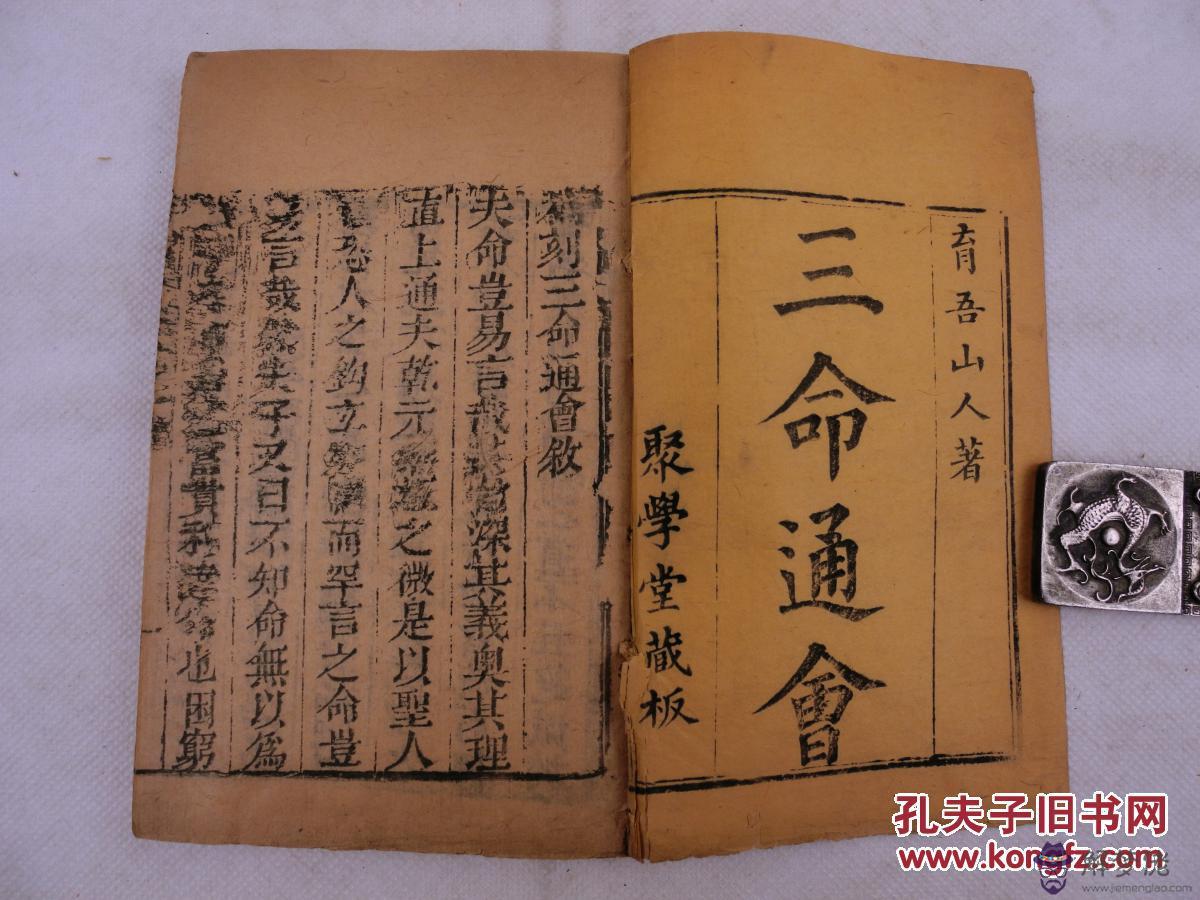 育吾山人著
三命通會
聚學堂藏板
刻三命通會敘
夫命豈易言哉 深其義奧其理
直上通夫乾元 之微是以聖人
恐人之鈎立 而罕言之命豈
易言哉 朱子又曰不知命無以爲
富貴 也困窮
孔夫子旧书网
www.kongfz.com
解梦佬
www.jiemenglao.com